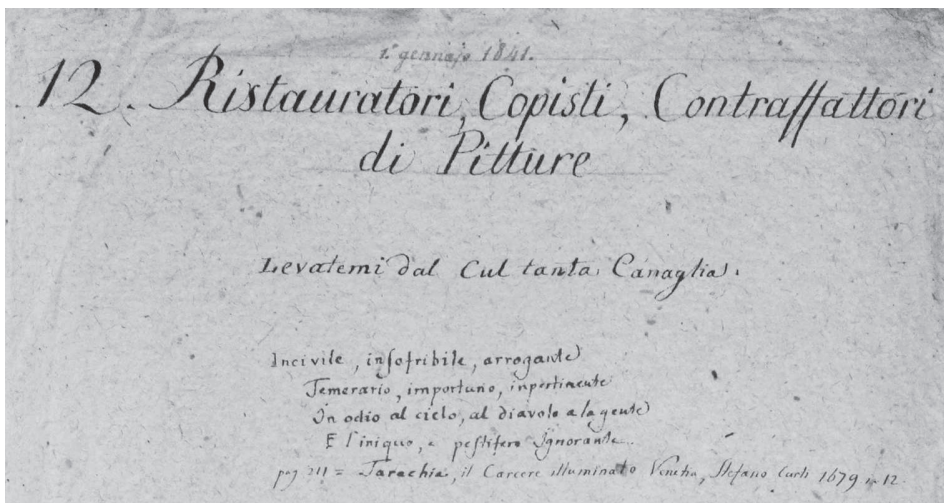 1.° gennajo 1841.
12. Ristauratori, Copisti, Contraffattori
di Pitture
Levatemi dal Cul tanta Canaglia.
Incivile, insofribile, arrogante
Temerario, importuno, inpertinente
In odio al cielo, al diavolo a la gente
È l'iniquo, e pestifero Ignorante.
pag 211 = Tarachia, il Carcere illuminato Venetia, Stefano Curti 1679 in 12.